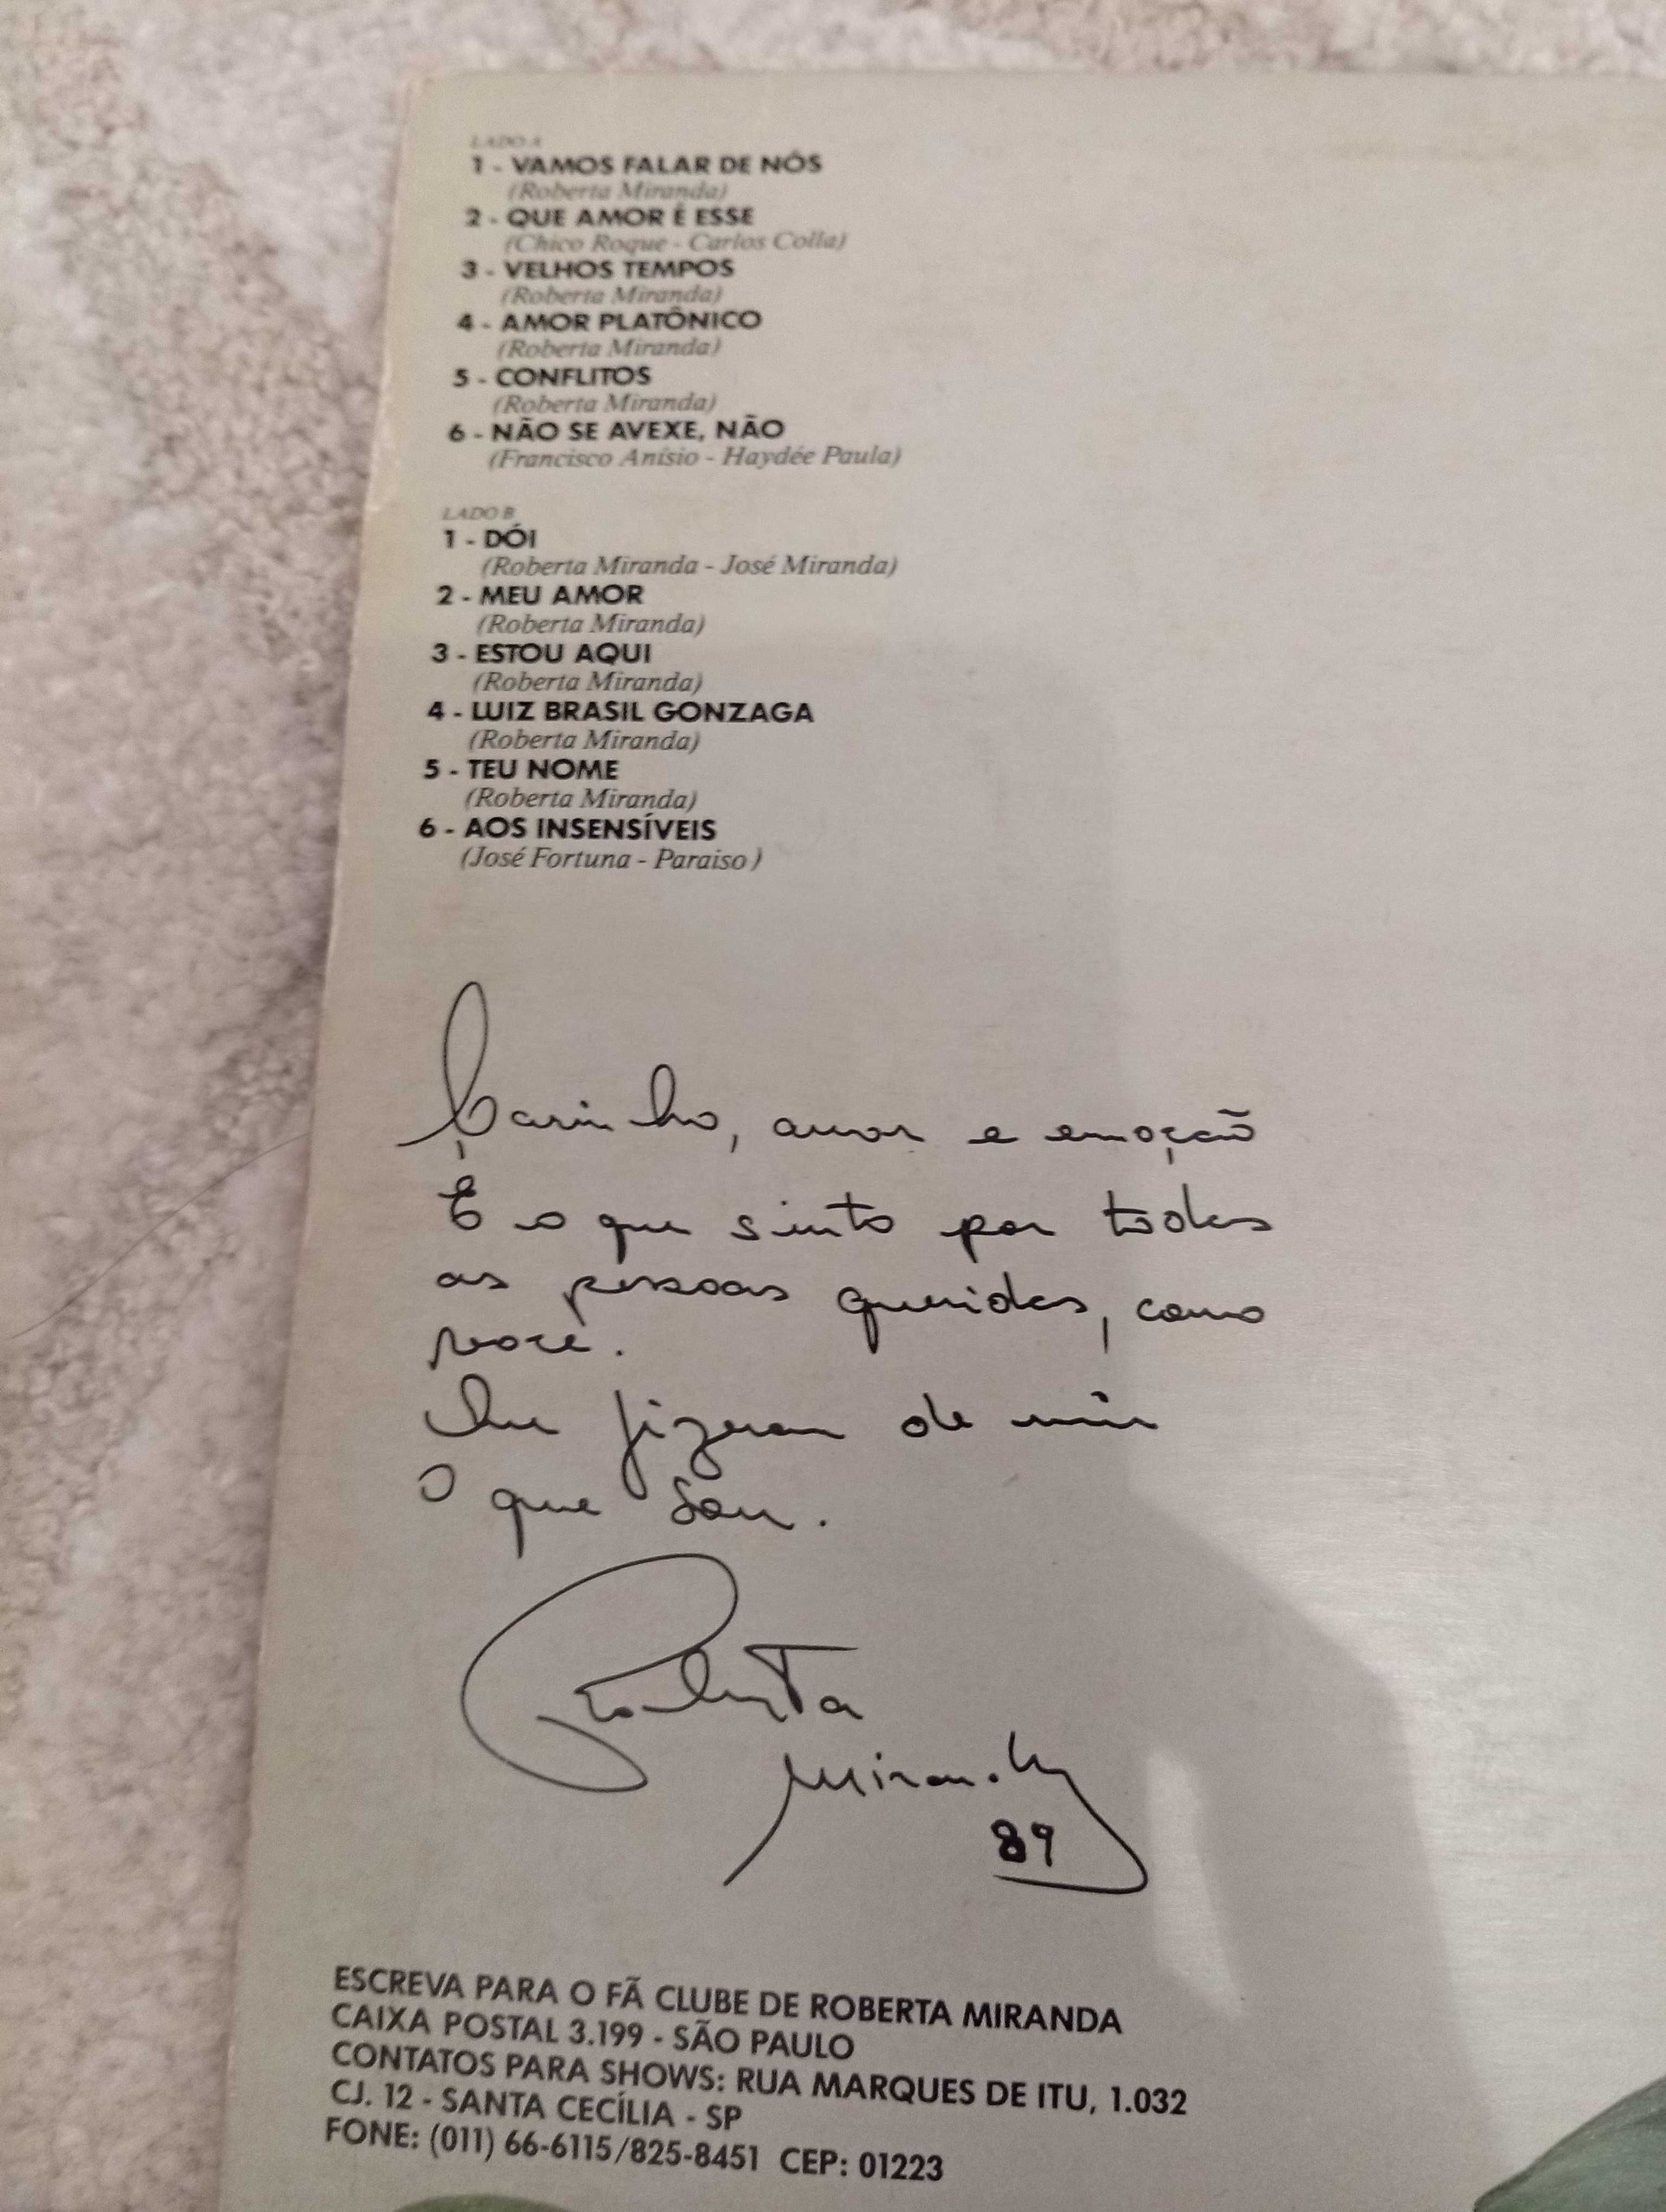 LADO A
1 - VAMOS FALAR DE NÓS
(Roberta Miranda)
2 - QUE AMOR É ESSE
(Chico Roque - Carlos Colla)
3 - VELHOS TEMPOS
(Roberta Miranda)
4 - AMOR PLATÔNICO
(Roberta Miranda)
5 - CONFLITOS
(Roberta Miranda)
6 - NÃO SE AVEXE, NÃO
(Francisco Anísio - Haydée Paula)
LADO B
1 - DÓI
(Roberta Miranda - José Miranda)
2 - MEU AMOR
(Roberta Miranda)
3 - ESTOU AQUI
(Roberta Miranda)
4 - LUIZ BRASIL GONZAGA
(Roberta Miranda)
5 - TEU NOME
(Roberta Miranda)
6 - AOS INSENSÍVEIS
(José Fortuna - Paraiso)
Carinho, amor e emoção
É o que sinto por todas
as pessoas queridas, como
você.
Que fizeram de mim
O que sou.
Roberta
Miranda
89
ESCREVA PARA O FÃ CLUBE DE ROBERTA MIRANDA
CAIXA POSTAL 3.199 - SÃO PAULO
CONTATOS PARA SHOWS: RUA MARQUES DE ITU, 1.032
CJ. 12 - SANTA CECÍLIA - SP
FONE: (011) 66-6115/825-8451 CEP: 01223